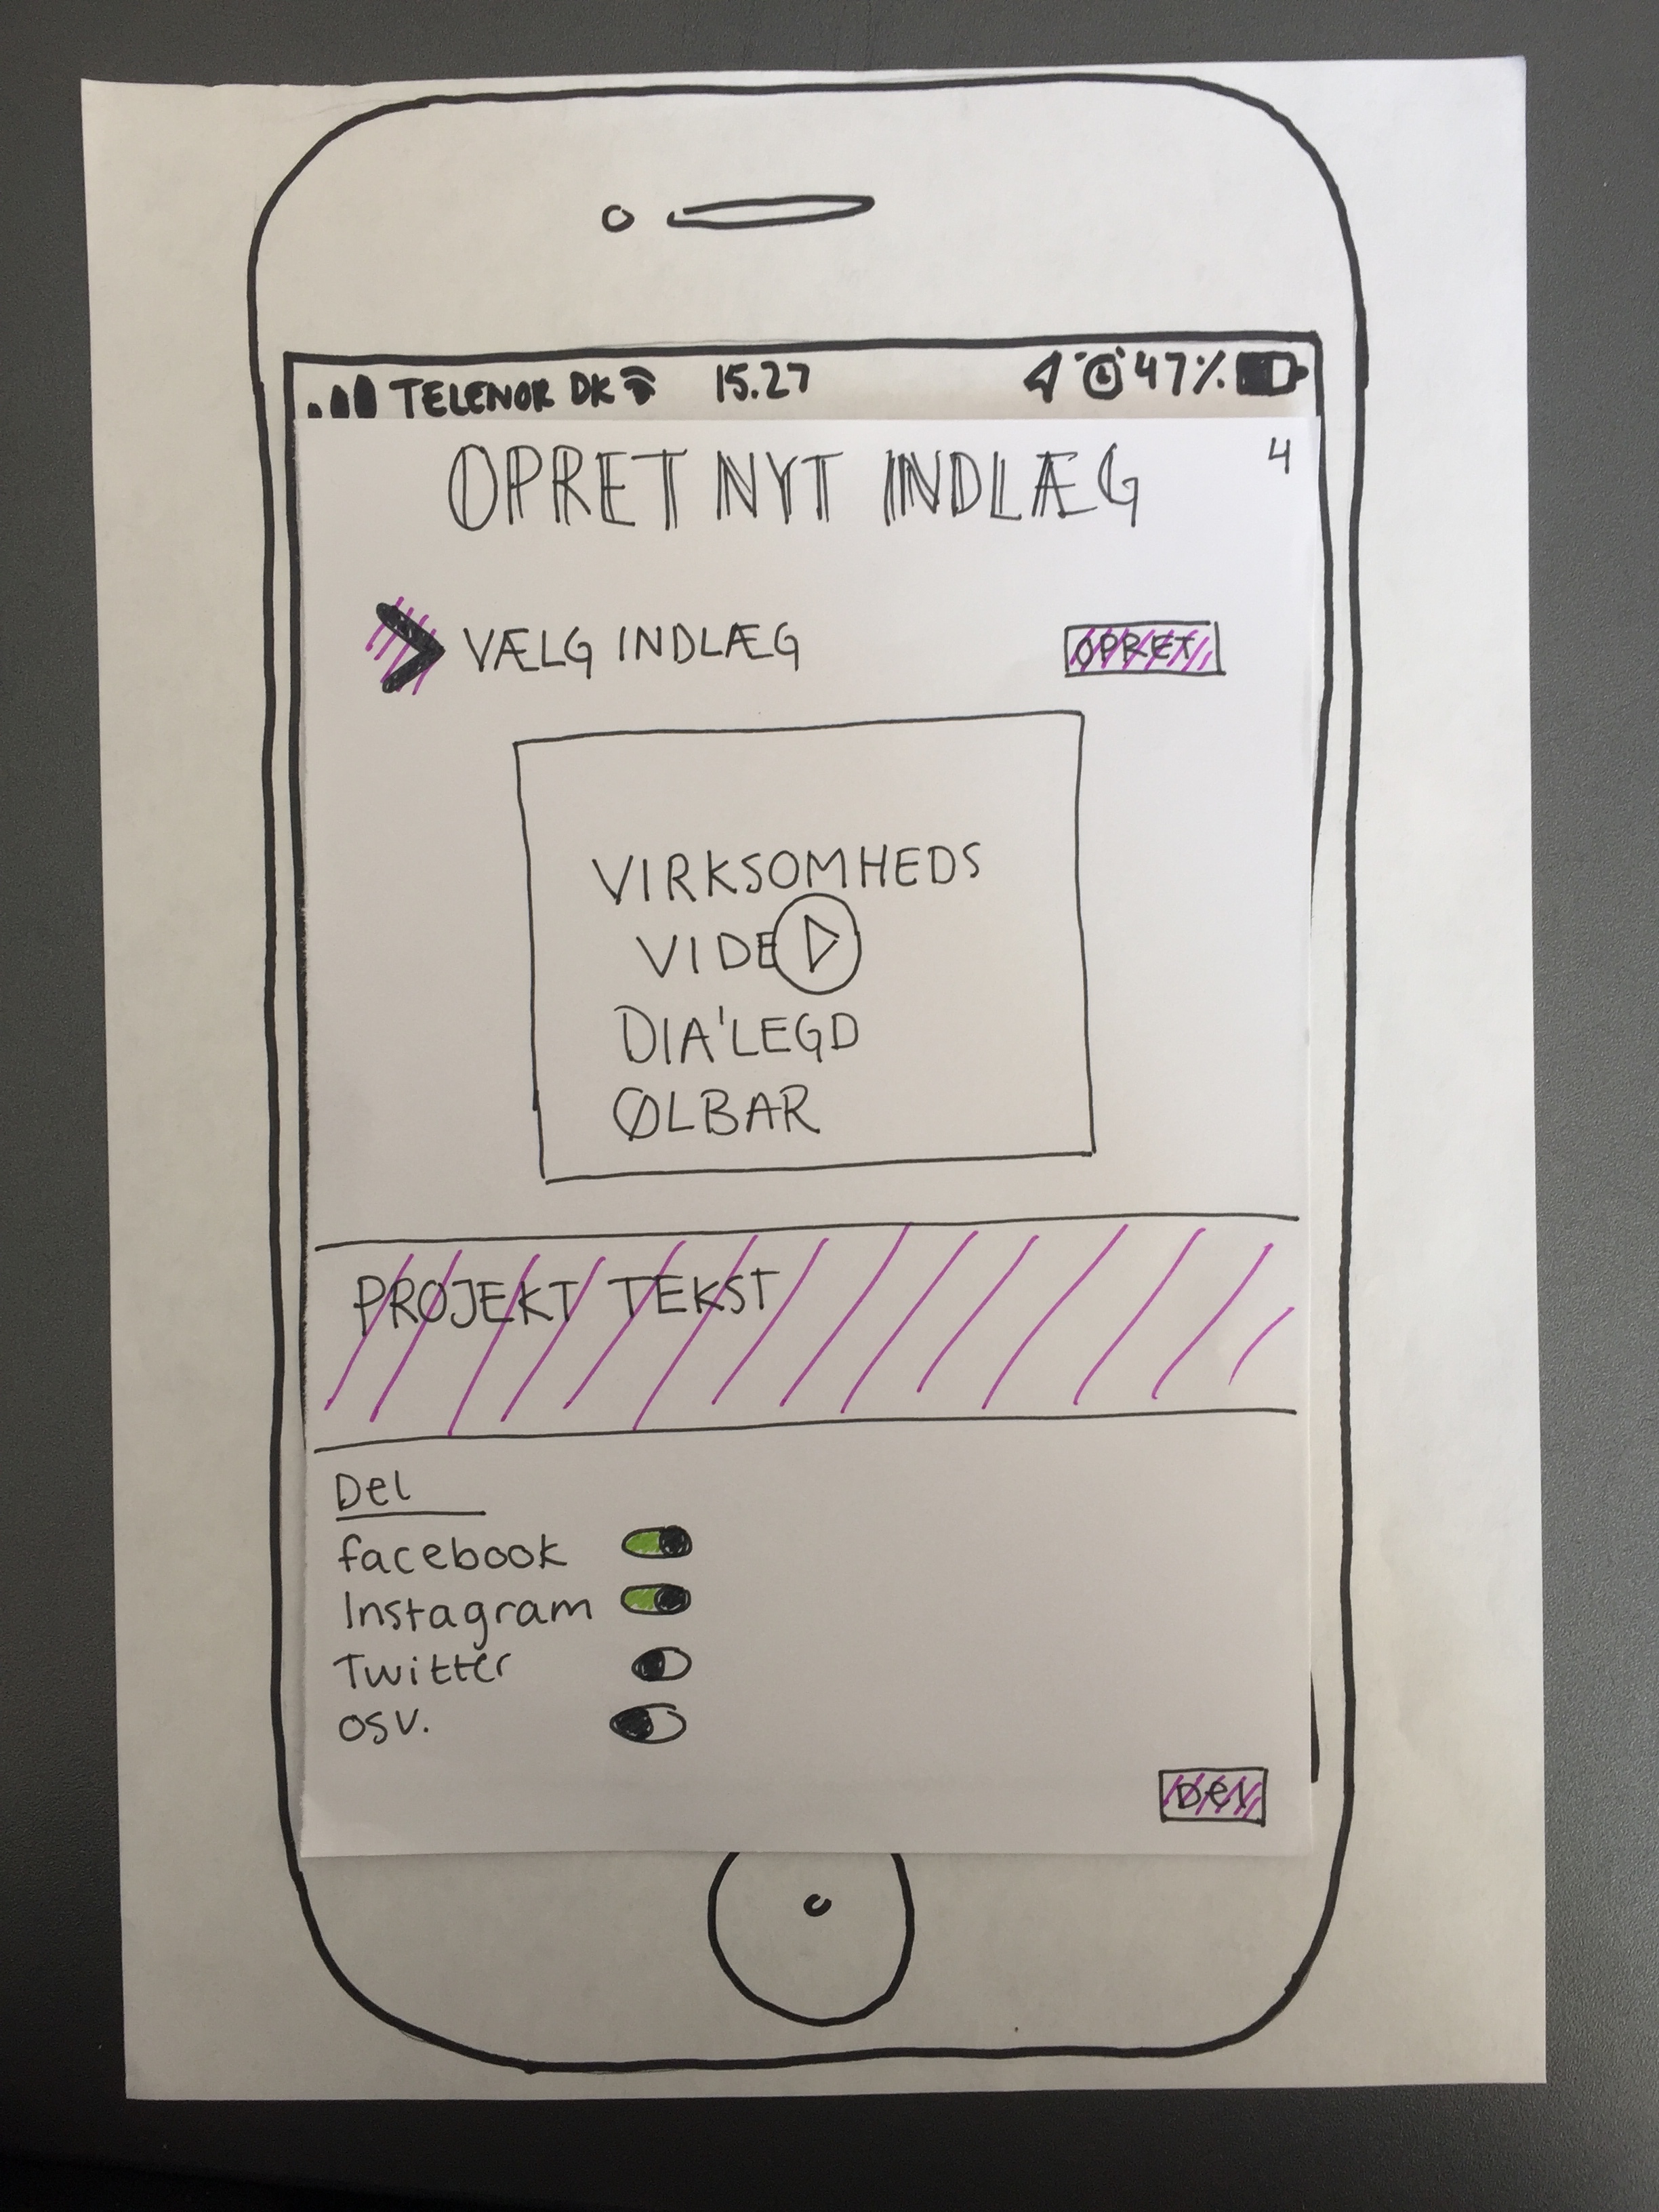 TELENOR DK 15.27 47%
OPRET NYT INDLÆG 4
VÆLG INDLÆG OPRET
VIRKSOMHEDS
VIDE
DIA'LEGD
ØLBAR
PROJEKT TEKST
Del
facebook
Instagram
Twitter
osv.
Del